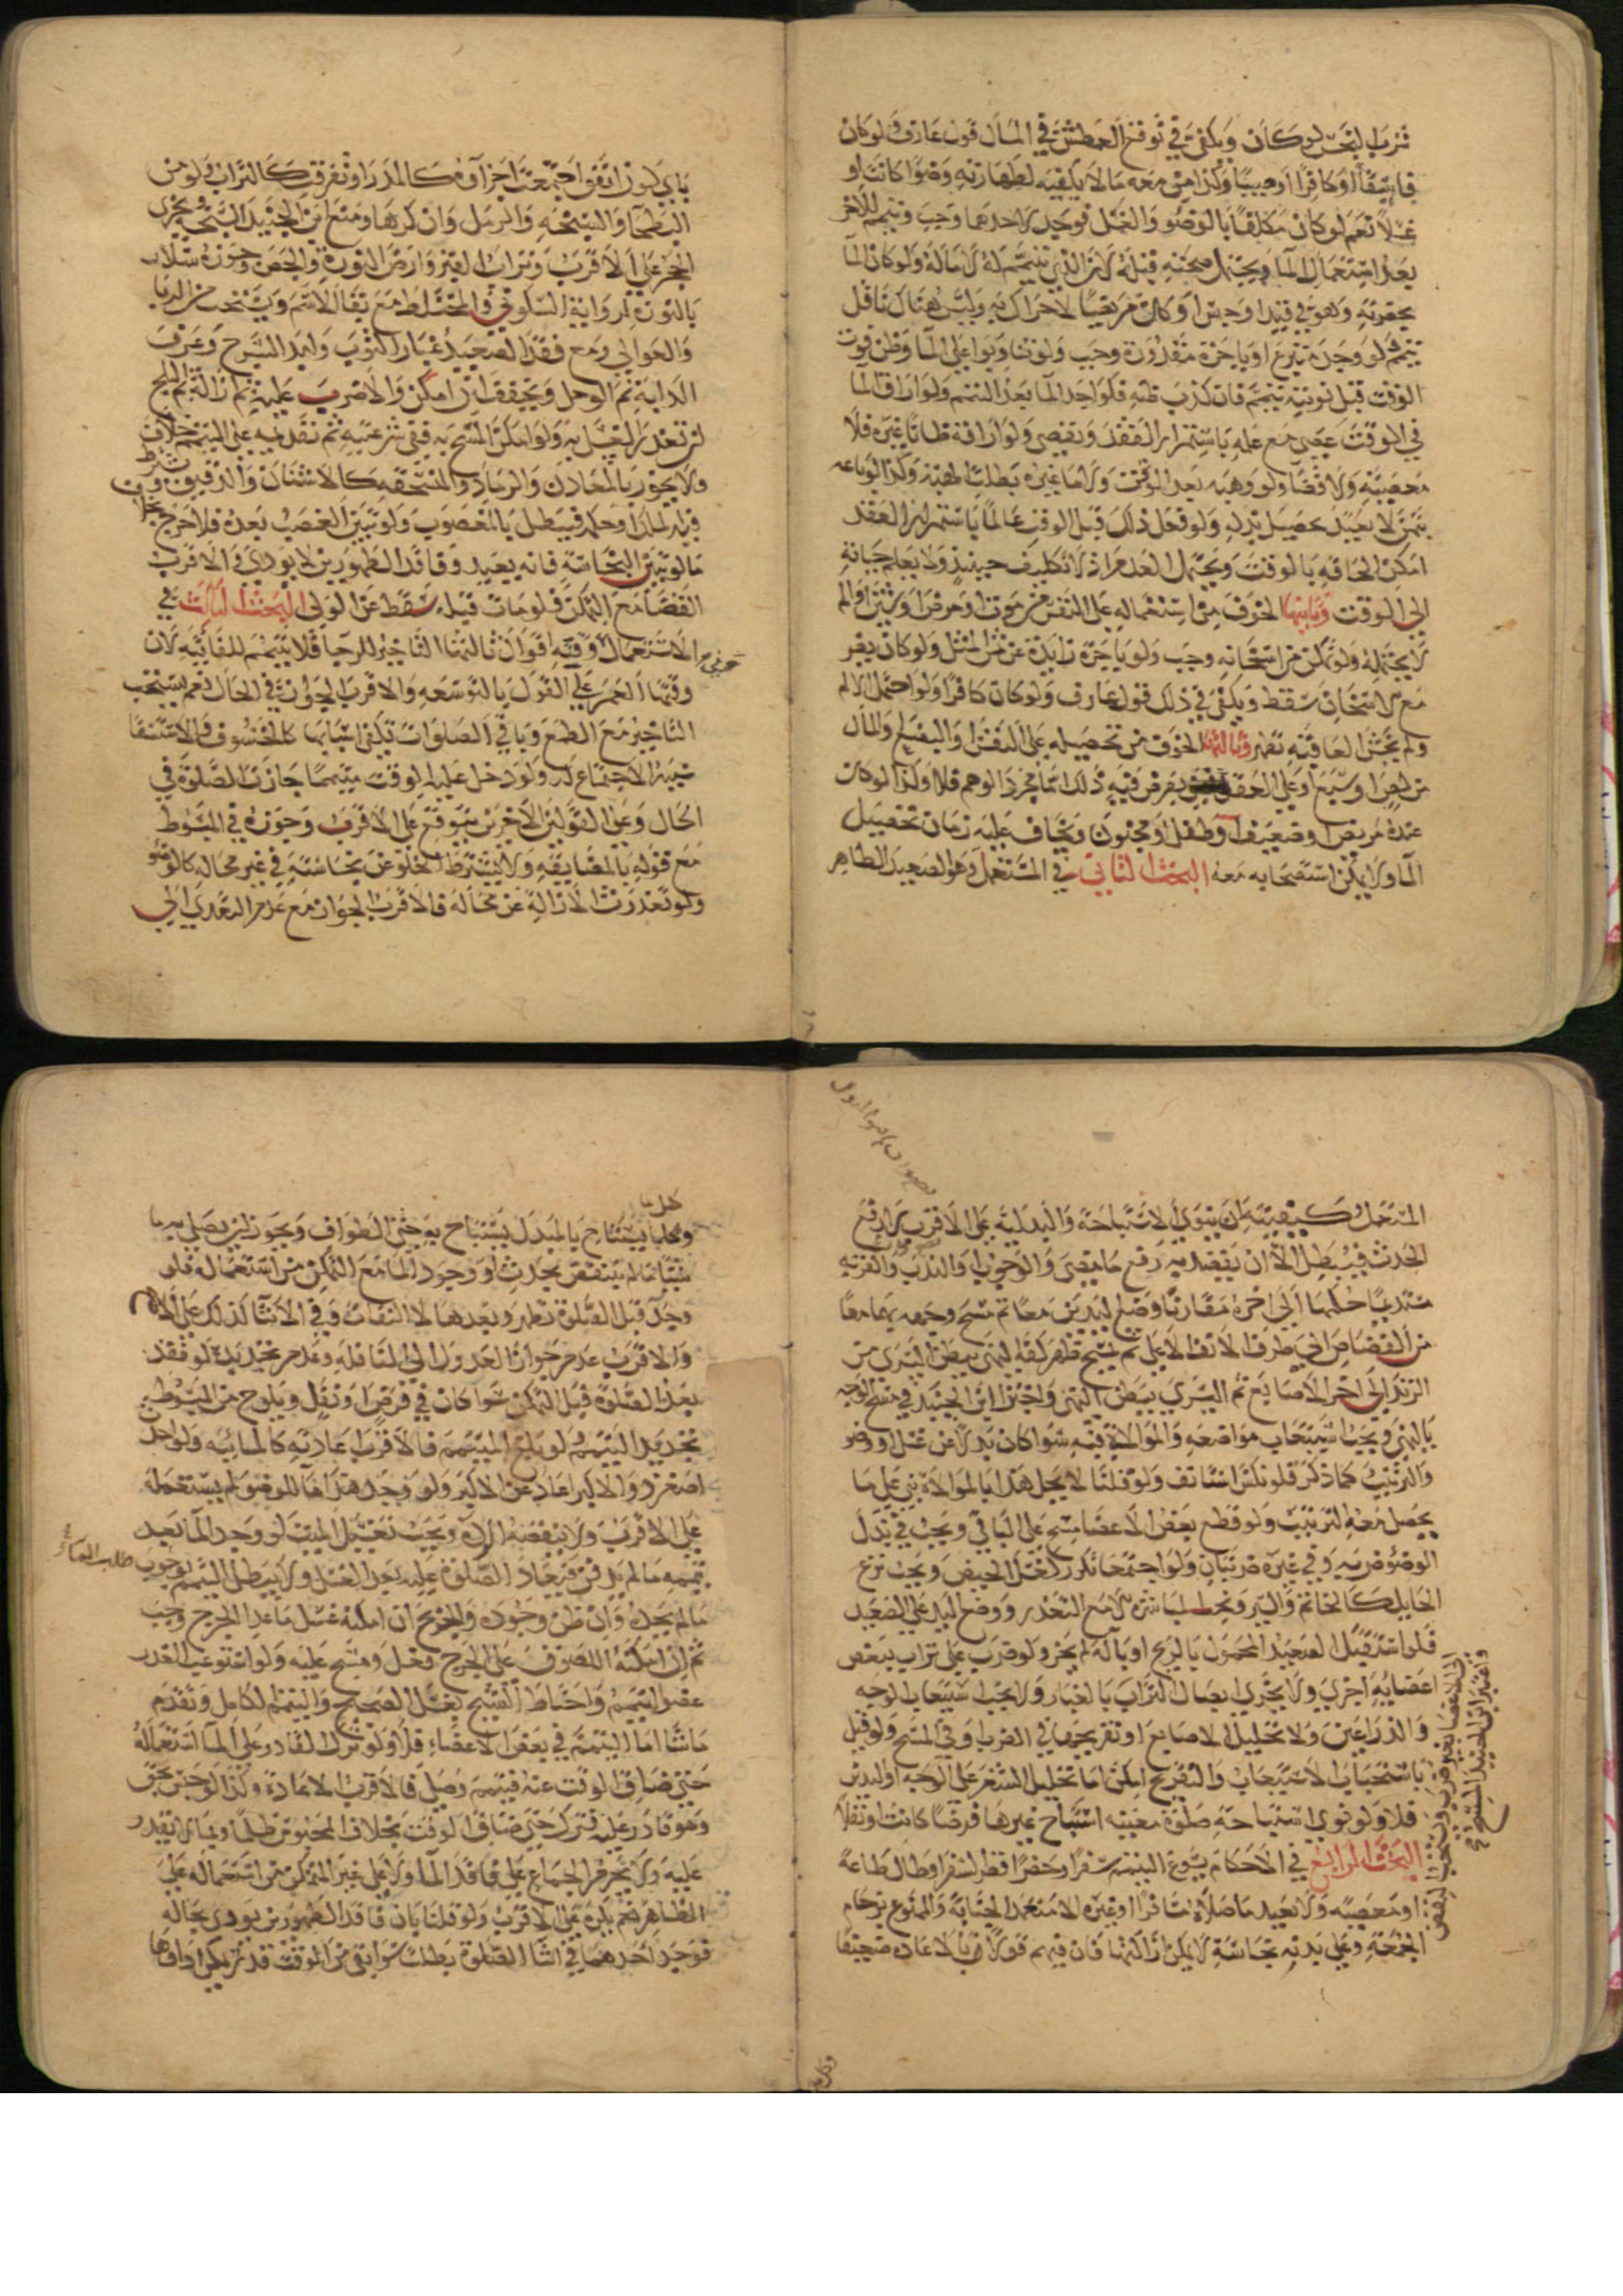 شرب النجس لو كان ويكفي في توقع العطش في المآل قول عارف ولو كان
فاسقا او كافرا او صبيا وكذا من معه ما لا يكفيه لطهارته وضوا كانت او
غسلا نعم لو كان مكلفا بالوضو والغسل فوجد لاحدهما وجب وتيمم للاخر
بعد استعمال الما ويحتمل صحته قبله لان الذي تيمم له لا ماله ولو كان الما
بحضرته وهو في قيد او حبس او كان مريضا لا حراك به وليس هناك ناقل
تيمم ولو وجد متبرعا او باجرة مقدورة وجب ولو تناوبوا على الما وظن فوت
الوقت قبل نوبته تيمم فان كذب ظنه فكواجد الما بعد التيمم ولو اراق الما
في الوقت عصى مع علمه باستمرار الفقد ويقضي ولو اراقه ظانا غيره فلا
معصية ولا قضا ولو وهبه بعد الوقت ولا ما غيره بطلت الهبة وكذا لو باعه
بثمن لا يفيد تحصيل بدله ولو فعل ذلك قبل الوقت عالما باستمرار الفقد
امكن الحاقه بالوقت ويحتمل العدم اذ لا تكليف حينئذ ولا يعلم حياته
الى الوقت وثانيها الخوف من استعماله على النفس من موت او مرض او شين او الم
لا يحتمله ولو تمكن من اسخانه وجب ولو باجرة زايدة عن ثمن المثل ولو كان يضر
مع الاسخان سقط ويكفي في ذلك قول عارف ولو كان كافرا ولو احتمل الالم
ولم يخش العاقبة تطهر وثالثها الخوف من تحصيله على النفس او البضع والمال
من لص او سبع او على العقل بعرض فيه ذلك اما مجرد الوهم فلا وكذا لو كان
عنده مريض او ضعيف او طفل او مجنون ويخاف عليه زمان تحصيل
الما ولا يمكن استصحابه معه البحث الثاني في المستعمل وهو الصعيد الطاهر
باي لون اتفق اجتمعت اجزاؤه كالمدر او تفرقت كالتراب ولو من
البطحا والسبخة والرمل وان كرها ومنع ابن الجنيد السبخ يجزي
الحجر على الاقرب وتراب القبر وارض النورة والجص وجوزه سلار
بالنورة لرواية السكوني والمختلط مع بقا الاسم ويستحب من الربا
والعوالي ومع فقد الصعيد غبار الثوب ولبد السرج وعرف
الدابة ثم الوحل ويجففه ان امكن والا ضرب عليه ثم ازاله ثم الثلج
ان تعذر الغسل به ولو امكن المسح به ففي شرعيته ثم تقديمه على التيمم خلاف
ولا يجوز بالمعادن والرماد والمنسحقه كالاشنان والدقيق ويشترط
فيه الملك او حكمه فيبطل بالمغصوب ولو تبين الغصب بعده فلا حرج بخلاف
ما لو تبين النجاسة فانه يعيد وفاقد الطهورين لا يودي والاقرب
القضا مع التمكن فلو مات قبله سقط عن الولي البحث الثالث في
الاستعمال وفيه اقوال ثالثها التاخير للرجا فلا يتيمم للفائتة لان
وقتها العمر على القول بالتوسعه والاقرب الجواز في الحال نعم يستحب
التاخير مع الطمع وباقي الصلوات تكفي اسبابها كالخسوف والاستسقا
يكفيه الاجتماع له ولو دخل عليه الوقت متيمما جازت الصلوة في
الحال وعلى القولين الاخرين يتوقع على الاقرب وجوزه في المبسوط
مع قوله بالمضايقه ولا يشترط الخلو عن نجاسته في غير محاله كالوضو
ولو تعذرت الازالة عن محاله فالاقرب الجواز مع عدم التعدي الى
المتحمل وكيفيته ان ينوي الاستباحة والبدلية على الاقرب لا رفع
الحدث فيبطل الا ان يقصد به رفع ما مضى والوجوب او الندب والقربة
مستديما حكمها الى اخره مقارنا وضع اليدين معا ثم مسح وجهه بهما معا
من القصاص الى طرف الانف الاعلى ثم يمسح ظهر كفه اليمنى ببطن اليسرى من
الزند الى اخر الاصابع ثم اليسرى ببطن اليمنى واجتزا ابن الجنيد في مسح الوجه
باليمنى ويجب استيعاب مواضعه والموالاة فيه سوا كان بدلا عن غسل او وضو
والترتيب كما ذكر فلو نكس استانف ولو قلنا لا يخل هذا بالموالاة بنى على ما
يحصل معه الترتيب ولو قطع بعض الاعضا مسح على الباقي ويجب في بدل
الوضو ضربه وفي غيره ضربتان ولو اجتمعا تكرر كغسل الحيض ويجب نزع
الحايل كالخاتم والسير ونحوه لمباشرة الا مع التعذر ووضع اليد على الصعيد
فلو استقبل الصعيد المحمول بالريح او بالة لم يجز ولو ضرب على تراب ببعض
اعضايه اجزى ولا يجزي ايصال التراب بالغبار ولا يجب استيعاب الوجه
والذراعين ولا تخليل الاصابع او تفريجها في الضرب وفي المسح ولو قيل
باستحباب الاستيعاب والتفريج امكن اما تخليل الشعر على الوجه او اليدين
فلا ولو نوى استباحة صلوة معينه استباح غيرها فرضا كانت او نفلا
البحث الرابع في الاحكام يسوغ التيمم سفرا وحضرا قصر السفر او طال طاعة
او معصيه ولا يعيد ما صلاه مسافرا او غيره الا متعمد الجنابة والممنوع بزحام
الجمعة وعلى بدنه نجاسة لا يمكن ازالتها فان فيهم قولا بالاعادة ضعيفا
وكلما يستباح بالمبدل يستباح به حتى الطواف ويجوز لان يصلي به ما
شا ما لم ينتقض بحدث او وجود الما مع التمكن من استعماله فلو
وجد قبل الصلوة تطهر وبعدها لا التفات وفي الاثنا كذلك على الا
والاقرب عدم جواز العدول الى النافله وعدم تجديده لو فقد
بعد الصلوة قبل التمكن سوا كان في فرض او نفل ويلوح من المبسوط
تجديد التيمم لو يمم الميت فالاقرب اعادته كالمائيه ولو احدث
اصغر والاكبر اعاد عن الاكبر ولو وجد هذا ما للوضو لم يستعمله
على الاقرب ولا ينقضه الردة ويجب تغسيل الميت لو وجد الما بعد
تيممه ما لم يدفن فيعاد الصلوة عليه بعد الغسل ولا يبطل التيمم بوجوب
طلب الماء
ما لم يجده وان ظن وجوده والجريح ان امكنه غسل ما عدا الجرح وجب
ثم ان امكنه اللصوق على الجرح فعل ومسح عليه ولو استوعب العذر
عضوا تيمم واحتاط الشيخ بغسل الصحيح والتيمم لكامل وتقدم
ما شا اما التيمم في بعض الاعضاء فلا ولو ترك القادر على الما استعماله
حتى ضاق الوقت عنه فيتيمم وصلى فالاقرب الاعادة وكذا لو حبس بحق
وهو قادر عليه فترك حتى ضاق الوقت بخلاف المحبوس ظلما او بمال لا يقدر
عليه ولا يحرم الجماع على فاقد الما ولا على غير المتمكن من استعماله على
الظاهر نعم يكره على الاقرب ولو قلنا بان فاقد الطهورين يودي بحاله
فوجد احدهما في اثنا الصلوة بطلت سوا بقي من الوقت قدر يمكن اداؤها